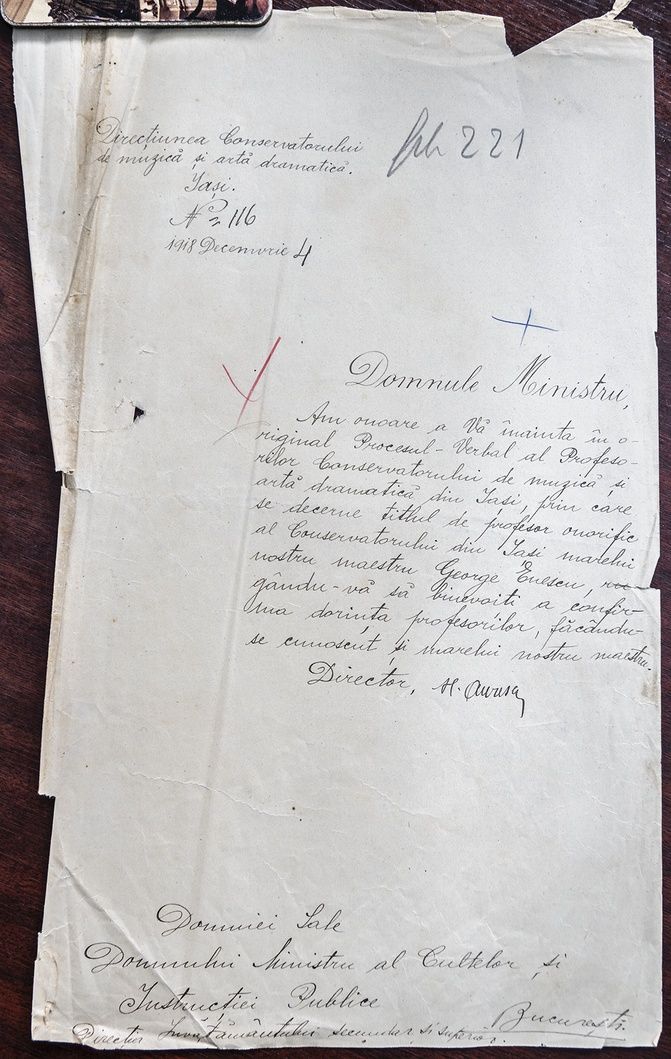 Direcțiunea Conservatorului
de muzică și artă dramatică.
Iași.
221
No 116
1918 Decemvrie 4
Domnule Ministru,
Am onoare a Vă înainta în o-
riginal Procesul-Verbal al Profeso-
rilor Conservatorului de muzică și
artă dramatică din Iași, prin care
se decerne titlul de profesor onorific
al Conservatorului din Iasi marelui
nostru maestru George Enescu, ru-
gându-vă să binevoiti a confir-
ma dorința profesorilor, făcându-
se cunoscut și marelui nostru maestru.
Director,
Domniei Sale
Domnului Ministru al Cultelor și
Instrucției Publice
București.
Director Învățământului secundar si superior.